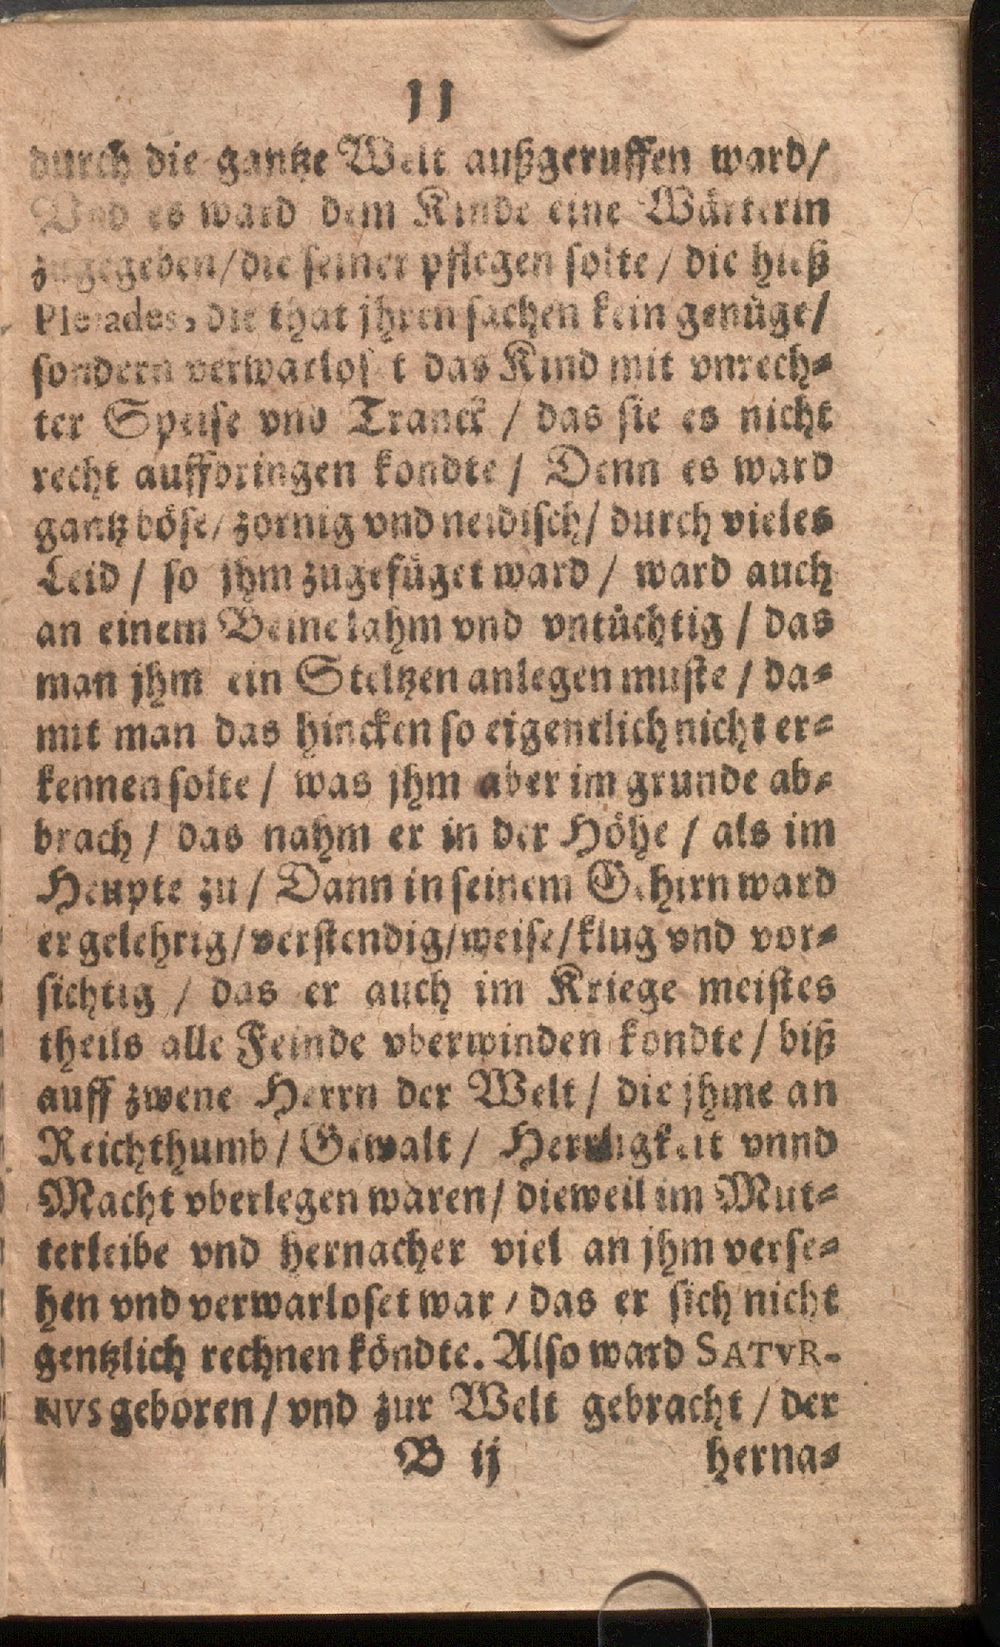 11
durch die gantze Welt außgeruffen ward/
Vnd es ward dem Kinde eine Wärterin
zugegeben/die seiner pflegen solte/ die hieß
Pleiades, die that jhren sachen kein genüge/
sondern verwarloset das Kind mit vnrech-
ter Speise vnd Tranck / das sie es nicht
recht auffbringen kondte / Denn es ward
gantz böse/ zornig vnd neidisch/ durch vieles
Leid / so jhm zugefüget ward / ward auch
an einem Beine lahm vnd vntüchtig / das
man jhm ein Steltzen anlegen muste / da-
mit man das hincken so eigentlich nicht er-
kennen solte / was jhm aber im grunde ab-
brach / das nahm er in der Höhe / als im
Heupte zu / Dann in seinem Gehirn ward
er gelehrig/verstendig/weise/klug vnd vor-
sichtig / das er auch im Kriege meistes
theils alle Feinde vberwinden kondte / biß
auff zwene Herrn der Welt / die jhme an
Reichthumb / Gewalt / Herrligkeit vnnd
Macht vberlegen waren/ dieweil im Mut-
terleibe vnd hernacher viel an jhm verse-
hen vnd verwarloset war / das er sich nicht
gentzlich rechnen köndte. Also ward SATVR-
NVS geboren / vnd zur Welt gebracht / der
B ij herna-